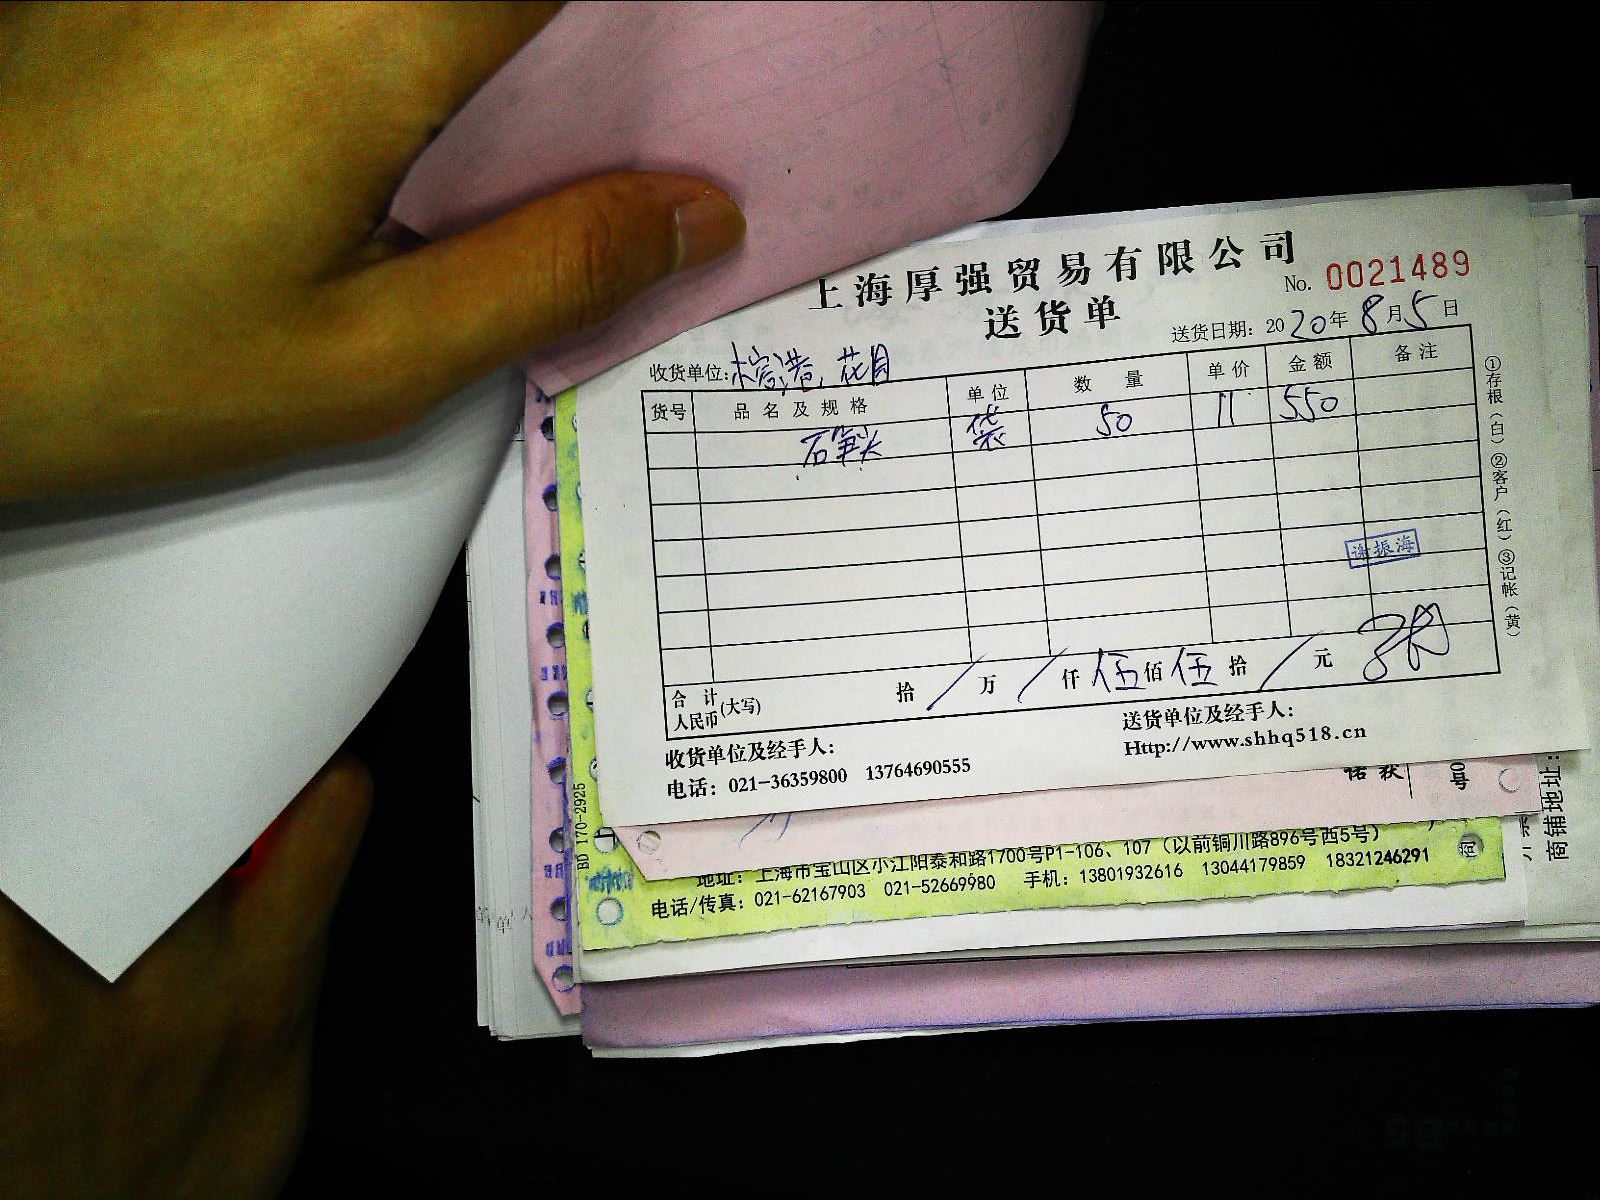 上海厚强贸易有限公司
No. 0021489
送货单
送货日期：2020年8月5日
收货单位：
货号 品名及规格 单位 数量 单价 金额 备注
石笋头 袋 50 11 550
谢振海
合计人民币(大写) 拾 / 万 / 仟 伍 佰 伍 拾 / 元
收货单位及经手人：
送货单位及经手人：
电话：021-36359800 13764690555
Http://www.shhq518.cn
①存根（白）②客户（红）③记帐（黄）
BD 170-2925
地址：上海市宝山区小江阳泰和路1700号P1-106、107（以前铜川路896号西5号）
电话/传真：021-62167903 021-52669980 手机：13801932616 13044179859 18321246291
商铺地址：